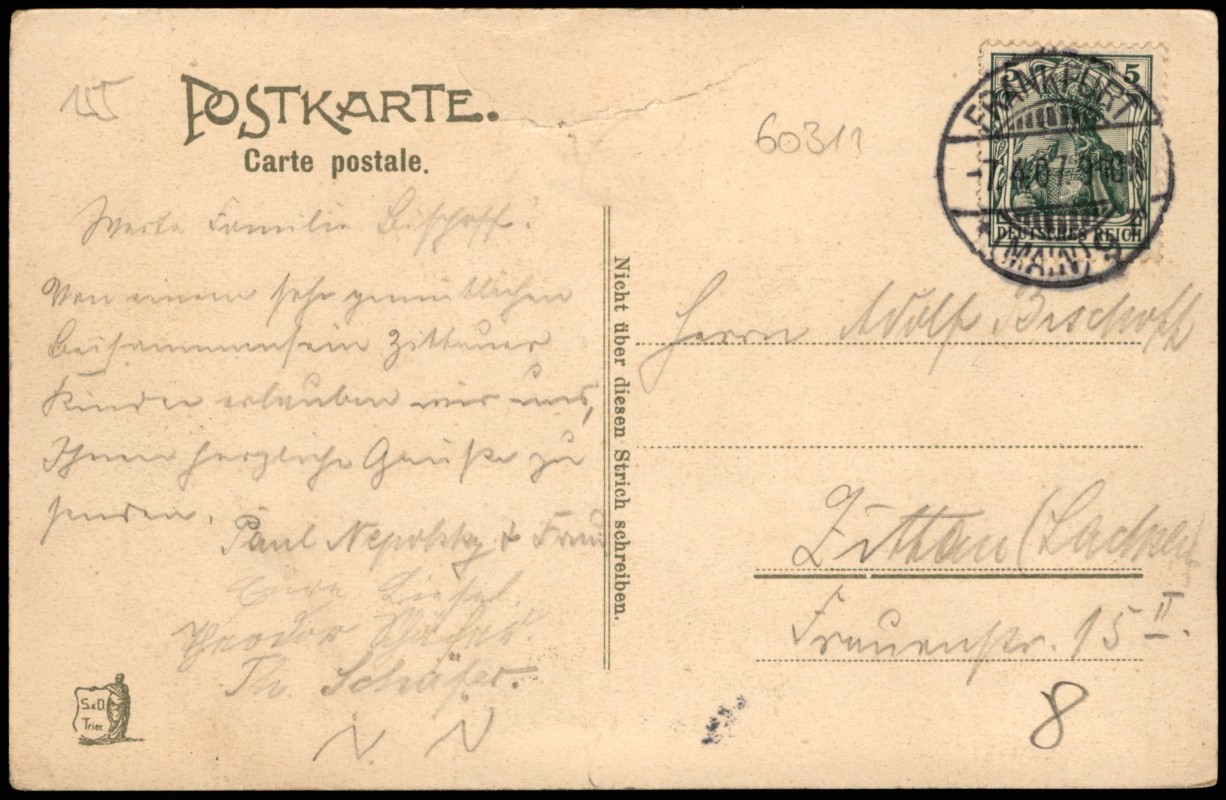 155
POSTKARTE.
Carte postale.
60311
5 5
FRANKFURT
7.4.07. 9-10 N
* (MAIN) 9
DEUTSCHES REICH
Werte Familie Bischoff!
Von einem sehr gemütlichen
Beisammensein Zittauer
Kinder erlauben wir uns,
Ihnen herzliche Grüße zu
senden.
Paul & Frau
Liesel.
Theodor Schäfer
Th. Schäfer.
Nicht über diesen Strich schreiben.
Herrn Adolf Bischoff
Zittau (Sachsen)
Frauenstr. 15 II.
8
S.&D.
Trier